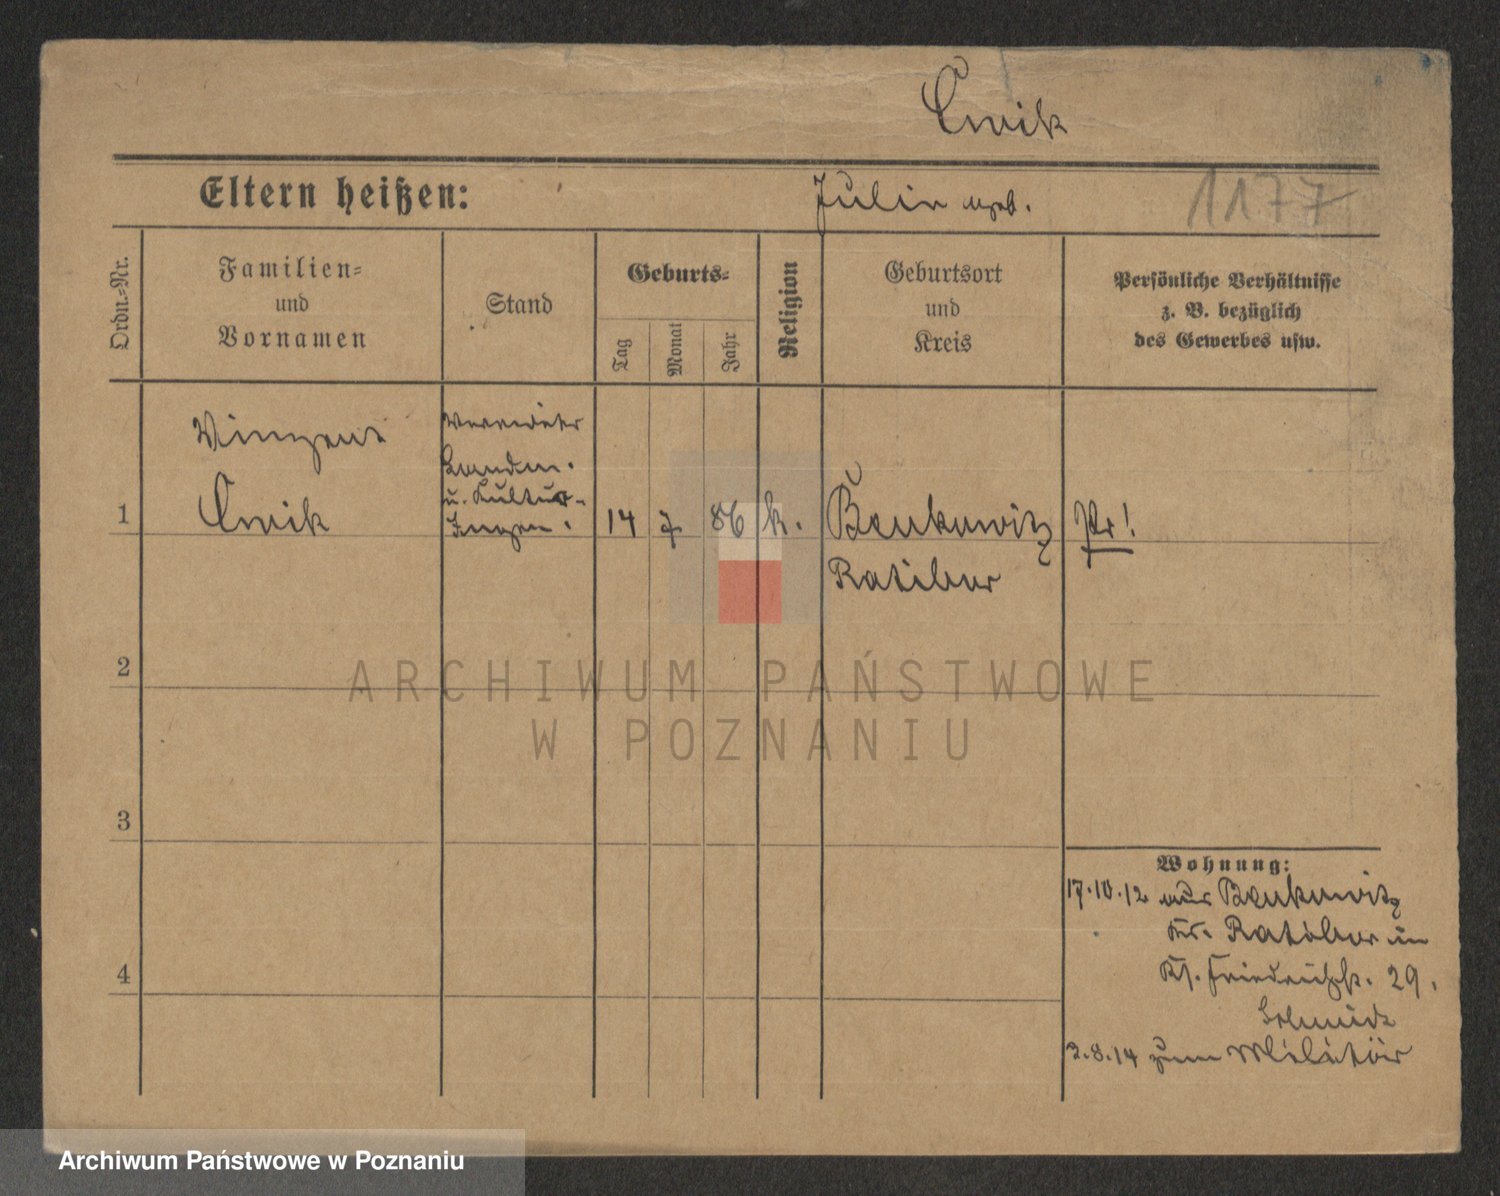 Cwik
Eltern heißen:
Julie geb.
1177
Ordn.-Nr.
Familien-
und
Vornamen
Stand
Geburts-
Tag
Monat
Jahr
Religion
Geburtsort
und
Kreis
Persönliche Verhältnisse
z. B. bezüglich
des Gewerbes usw.
1
Vinzent
Cwik
Landm.
u. Kultur-
Ingen.
14
7
86
k.
Benkowitz
Ratibor
Pr!
2
ARCHIWUM PAŃSTWOWE
W POZNANIU
3
4
Wohnung:
17.10.12 aus Benkowitz
Kr. Ratibor in
Friedrichstr. 29.
Schmidt
2.8.14 zum Militär
Archiwum Państwowe w Poznaniu